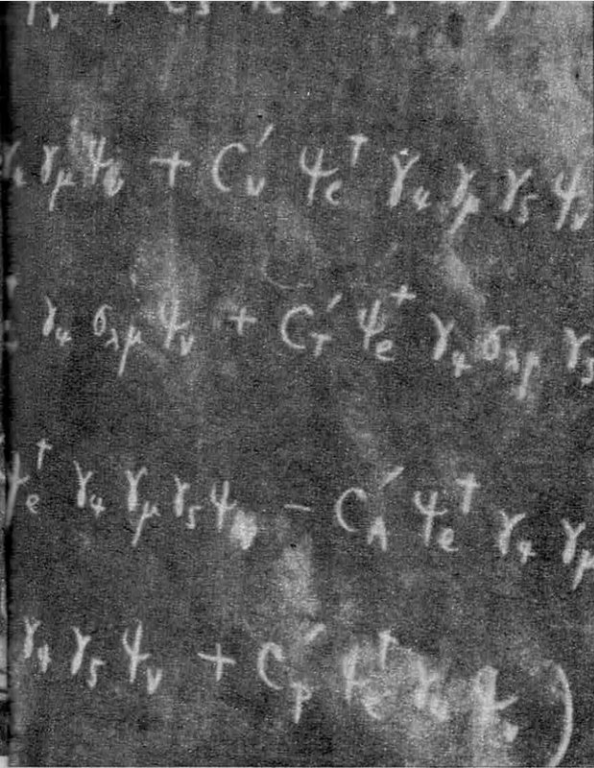 γ₄ γ_μ ψ_ν + C′_V ψ_e† γ₄ γ_μ γ₅ ψ_ν
γ₄ σ_λμ ψ_ν + C′_T ψ_e† γ₄ σ_λμ γ₅
ψ_e† γ₄ γ_μ γ₅ ψ_ν − C′_A ψ_e† γ₄ γ_μ
γ₄ γ₅ ψ_ν + C′_P ψ_e† γ₄ ψ_ν )